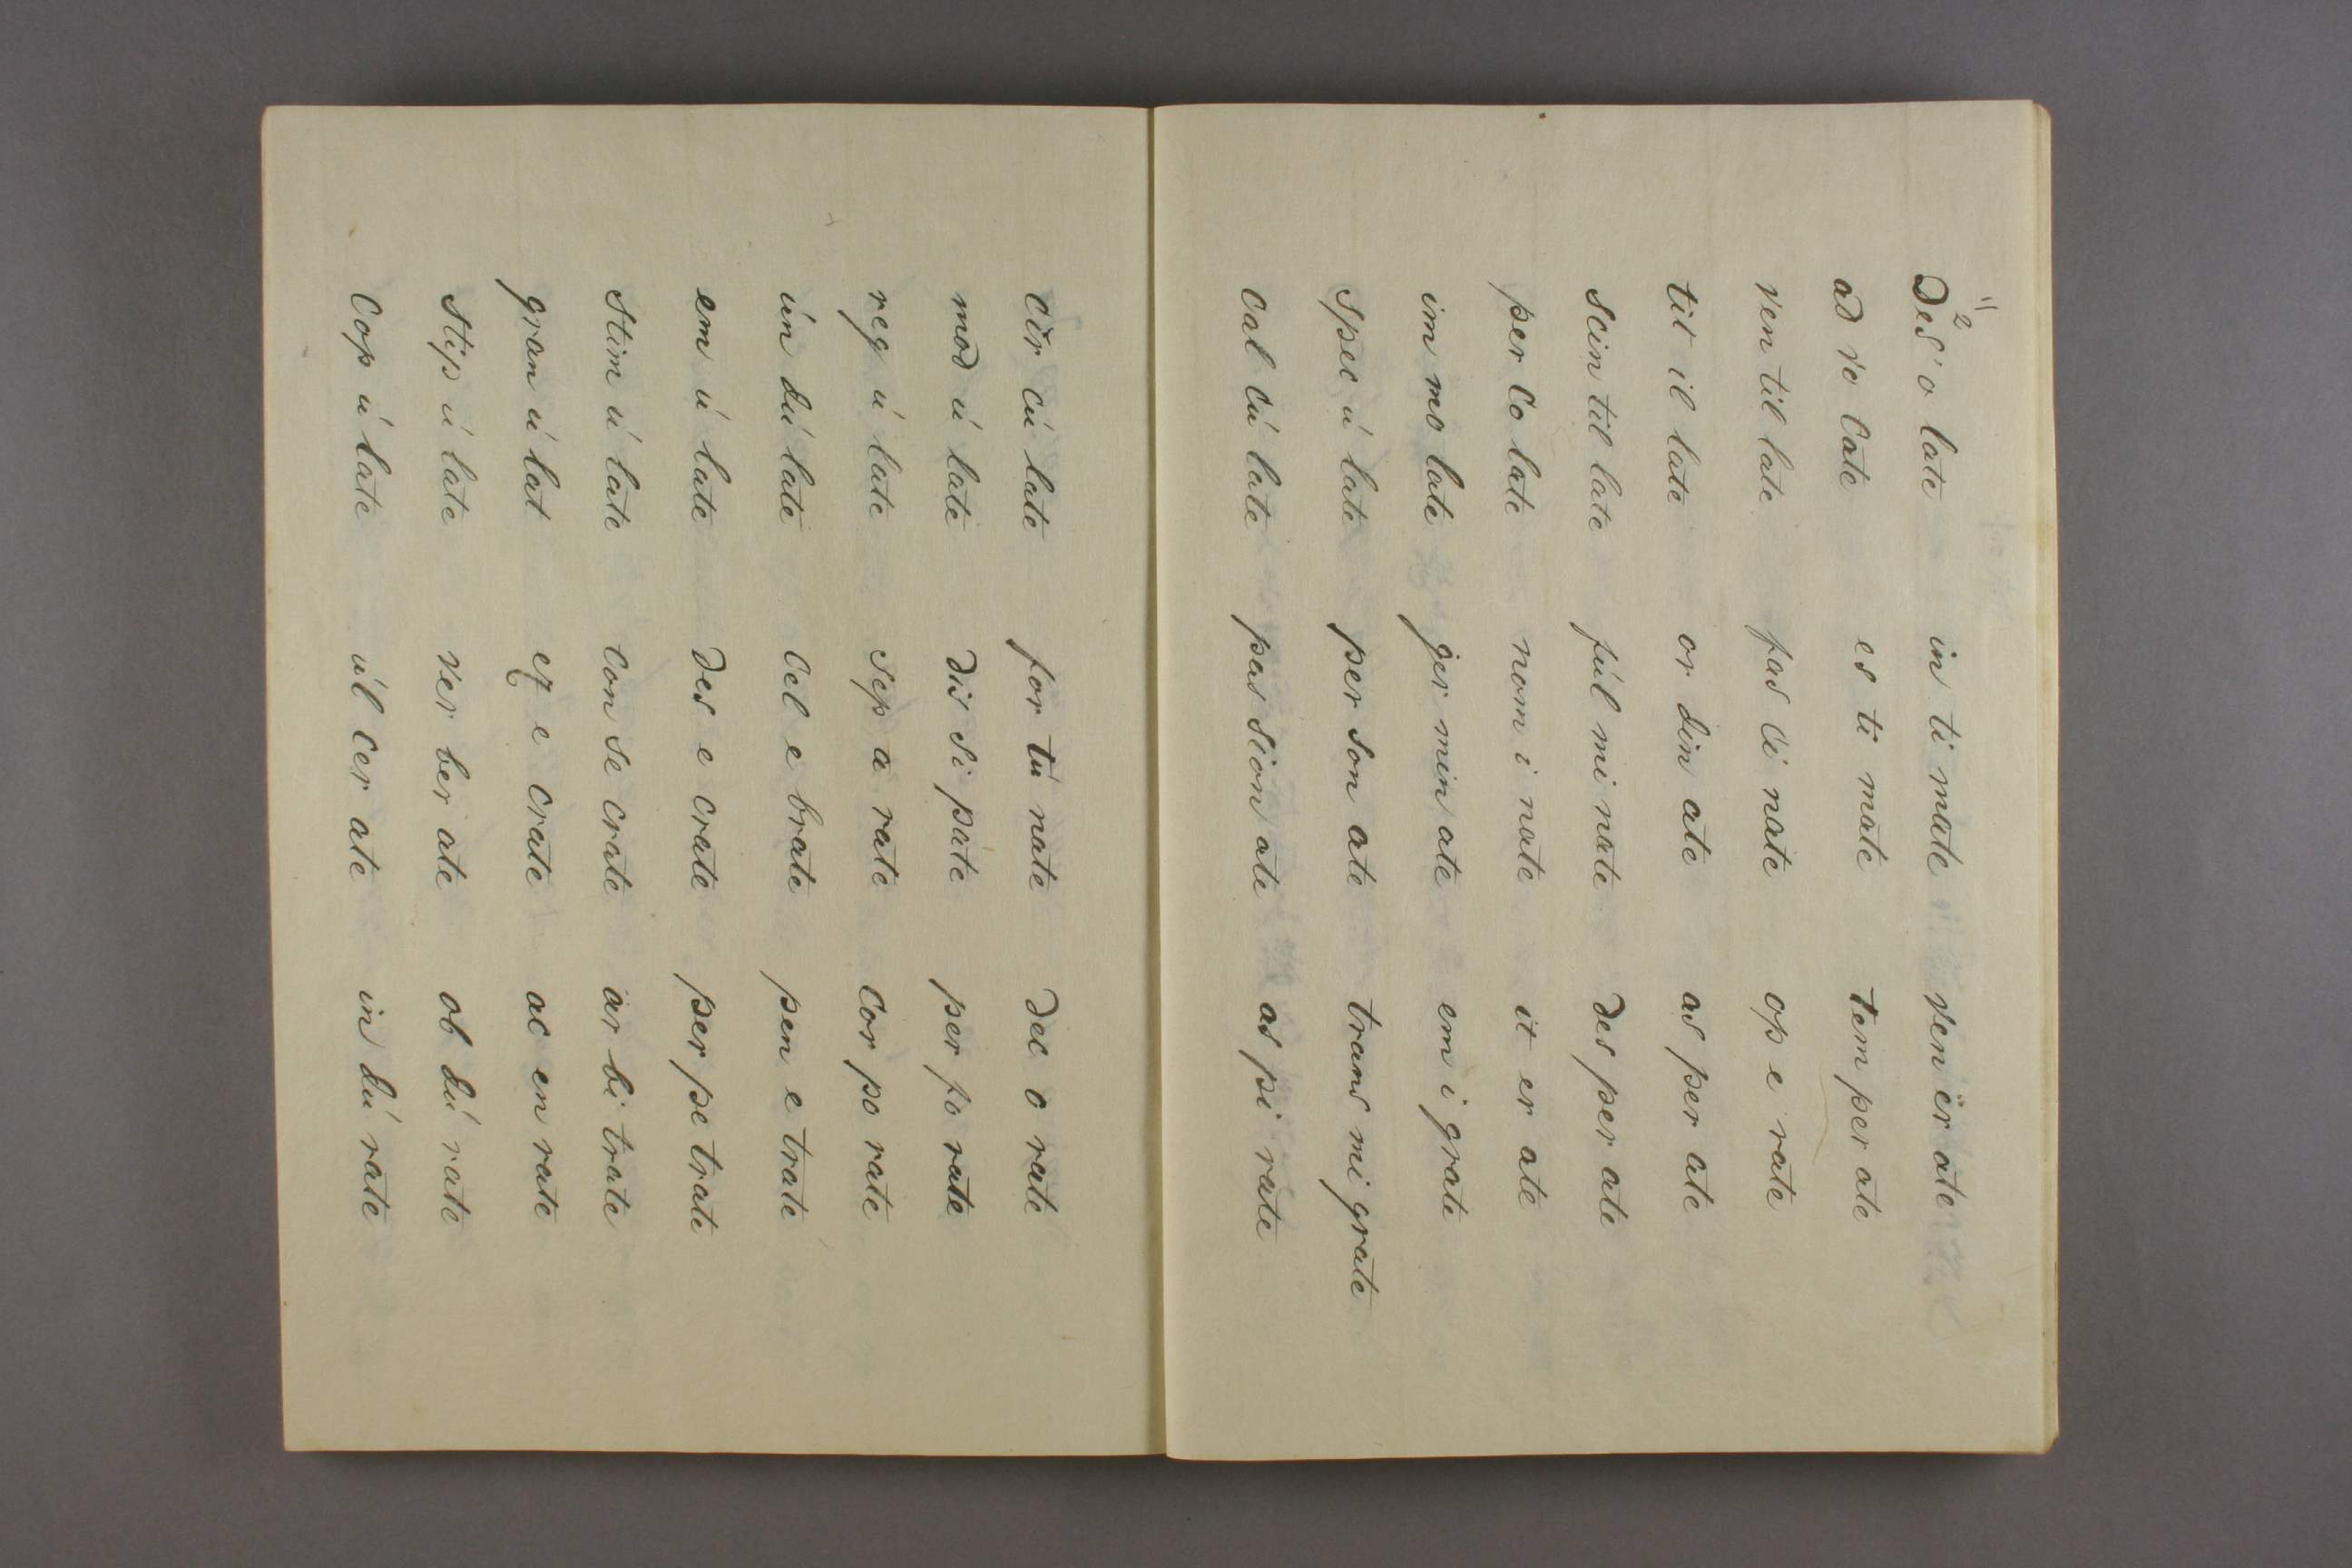 " 2
Des o late in ti mate ven er ate
ad vo cate es ti mate tem per ate
ven til late fas ci nate op e rate
tit il late or din ate as per ate
scin til late fúl mi nate des per ate
per co late nom i nate it er ate
im mo late ger min ate em i grate
spec ú late per son ate trans mi grate
cal cú late pas sion ate as pi rate
cir cú late for tú nate dec o rate
mod ú late dis si pate per fo rate
reg ú late sep a rate cor po rate
ún dú late cel e brate pen e trate
em ú late des e crate per pe trate
stim ú late con se crate ar bi trate
gran ú lat ex e crate ac en rate
stip ú late ver ber ate ob dú rate
cop ú late úl cer ate in dú rate